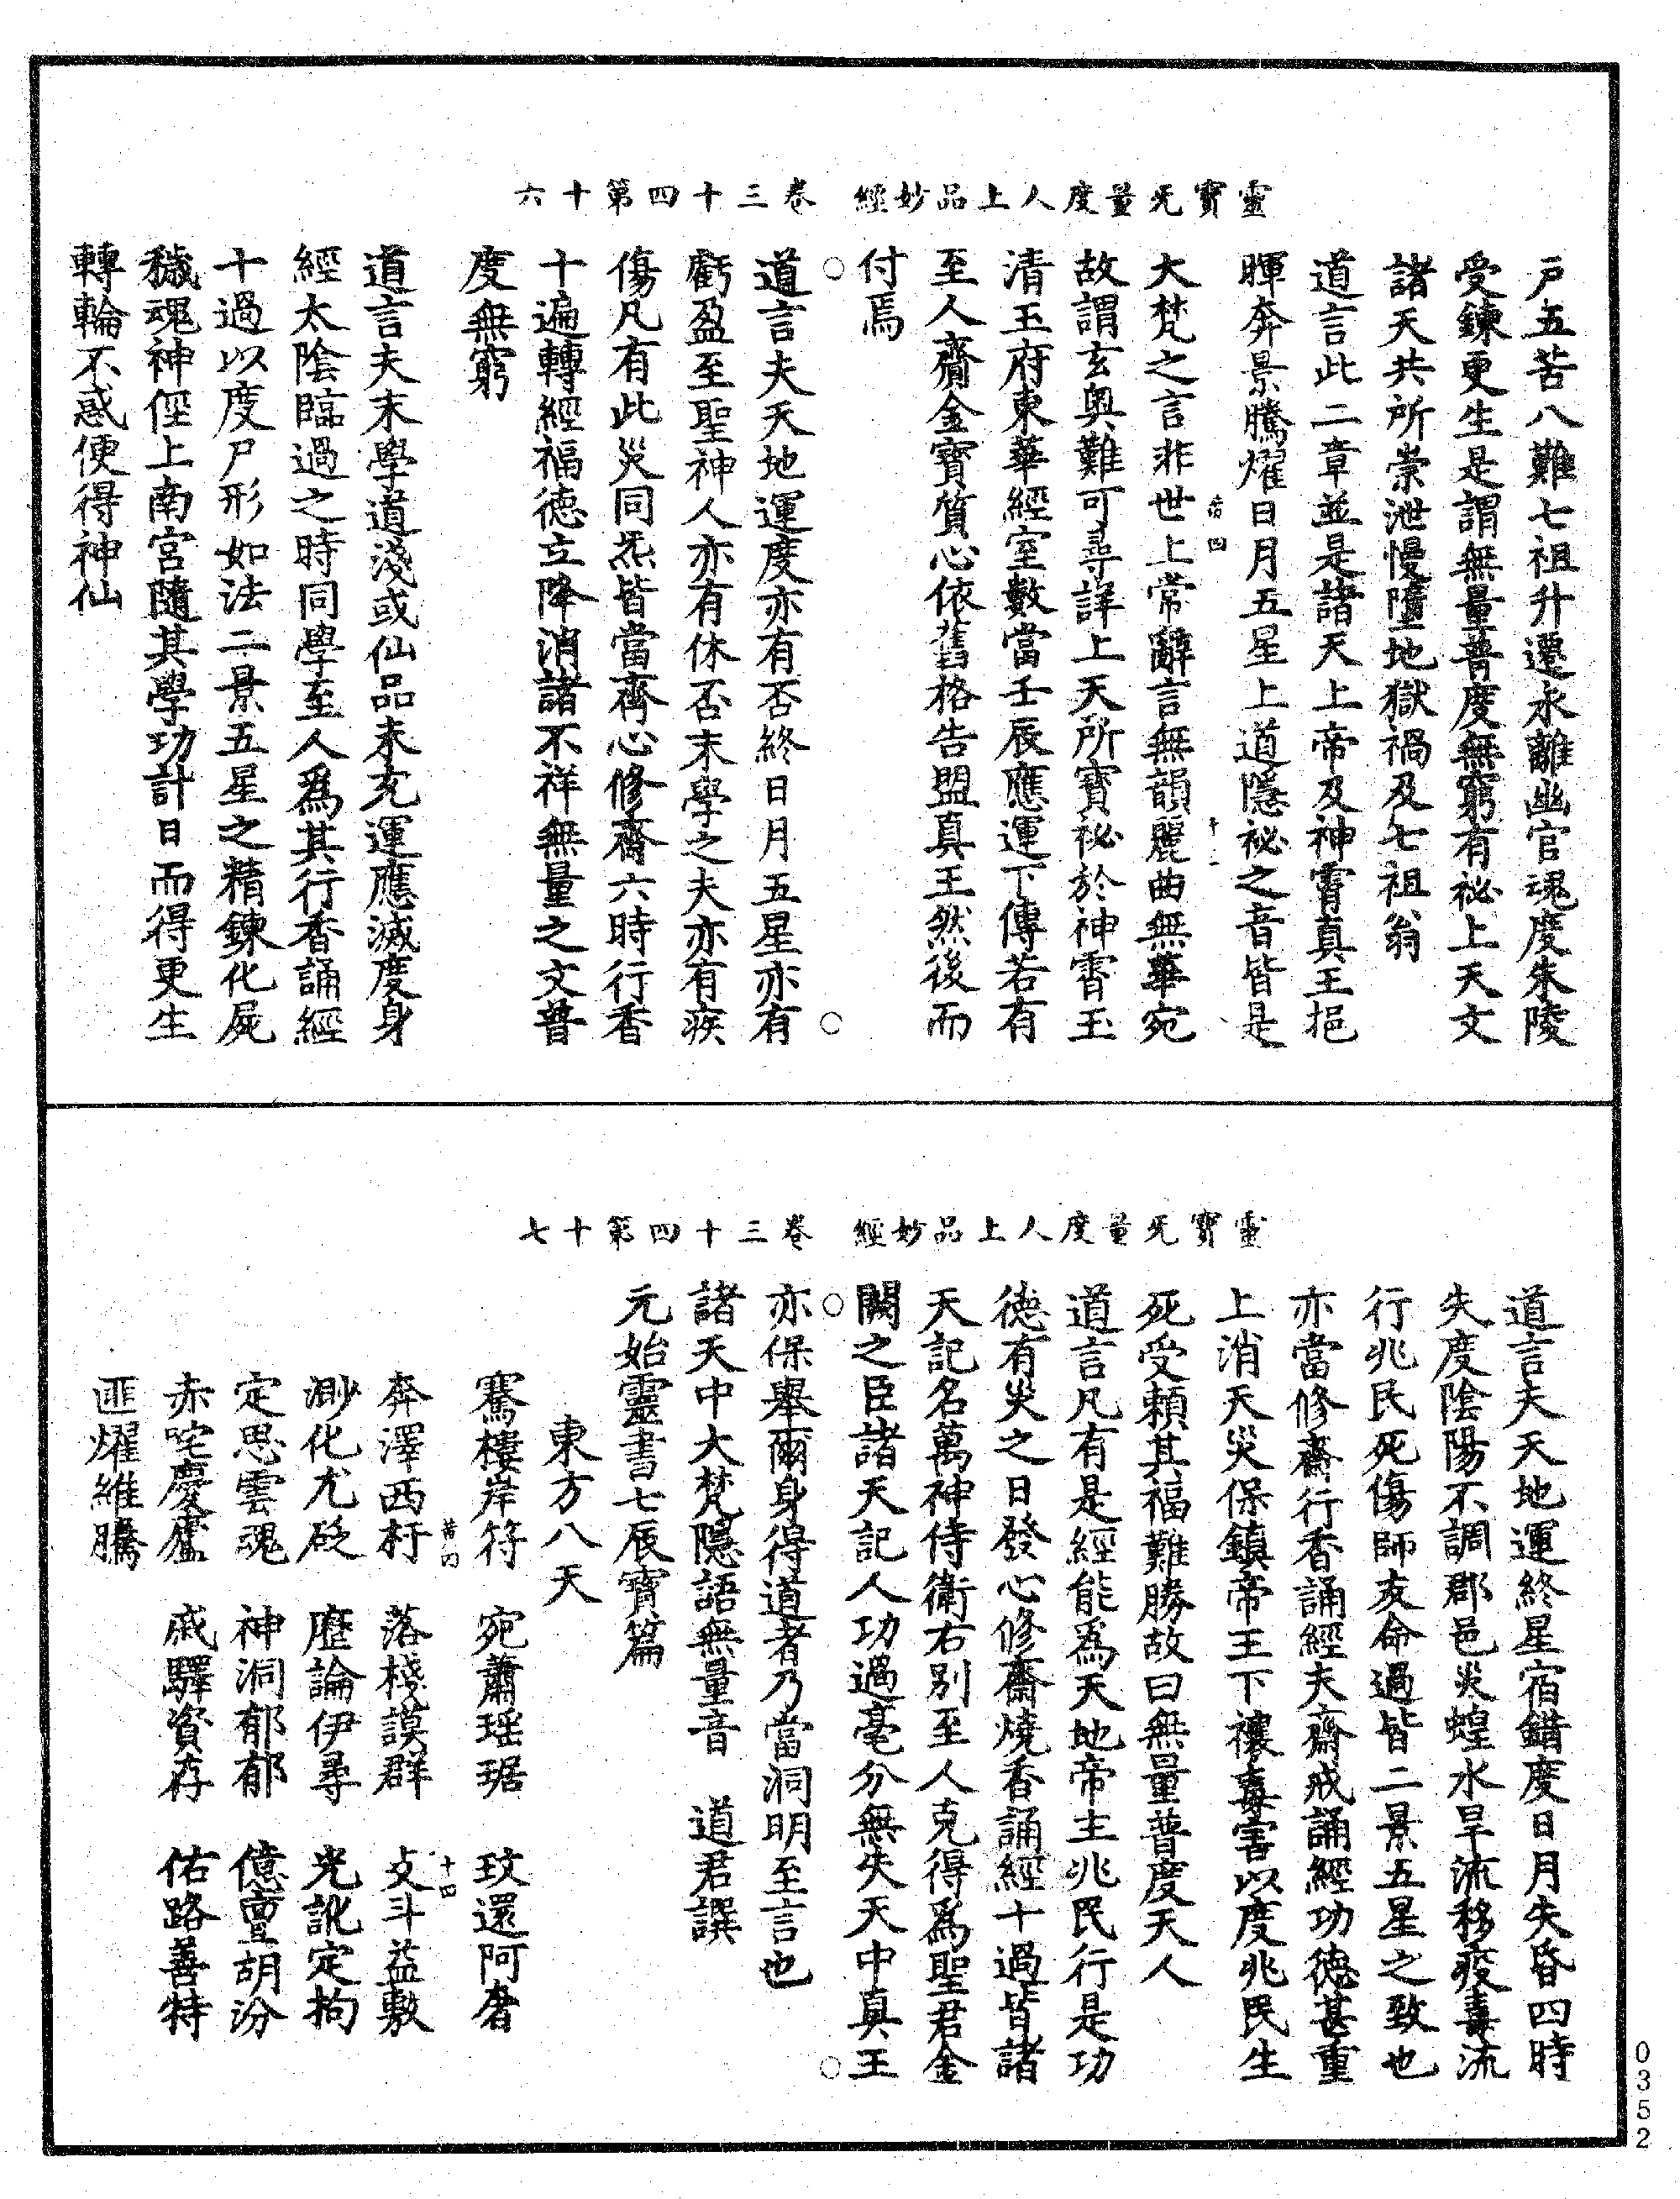 靈寶无量度人上品妙經　卷三十四第十六
戶五苦八難七祖升遷永離幽官魂度朱陵
受鍊更生是謂無量普度無窮有祕上天文
諸天共所崇泄慢墮地獄禍及七祖翁
道言此二章並是諸天上帝及神霄真王挹
暉奔景騰燿日月五星上道隱祕之音皆是
昔四　十二
大梵之言非世上常辭言無韻麗曲無華宛
故謂玄奧難可尋詳上天所寶祕於神霄玉
清王府東華經室數當壬辰應運下傳若有
至人齎金寶質心依舊格告盟真王然後而
付焉
道言夫天地運度亦有否終日月五星亦有
虧盈至聖神人亦有休否末學之夫亦有疾
傷凡有此災同炁皆當齊心修齋六時行香
十遍轉經福德立降消諸不祥無量之文普
度無窮
道言夫末學道淺或仙品未充運應滅度身
經太陰臨過之時同學至人爲其行香誦經
十過以度尸形如法二景五星之精鍊化屍
穢魂神徑上南宮隨其學功計日而得更生
轉輪不惑便得神仙
靈寶无量度人上品妙經　卷三十四第十七
道言夫天地運終星宿錯度日月失昏四時
失度陰陽不調郡邑災蝗水旱流移疫毒流
行兆民死傷師友命過皆二景五星之致也
亦當修齋行香誦經夫齋戒誦經功德甚重
上消天災保鎮帝王下禳毒害以度兆民生
死受賴其福難勝故曰無量普度天人
道言凡有是經能爲天地帝主兆民行是功
德有災之日發心修齋燒香誦經十過皆諸
天記名萬神侍衛右別至人克得爲聖君金
闕之臣諸天記人功過毫分無失天中真王
亦保舉爾身得道者乃當洞明至言也
諸天中大梵隱語無量音　道君譔
元始靈書七辰寶篇
東方八天
騫樓岸符　宛蕭瑶琚　玟還阿奢
昔四　十四
奔澤西杅　落棧謨群　攴斗益敷
渺化尤砭　歷論伊尋　光訛定拘
定思雲魂　神洞郁郁　億亶胡汾
赤咤慶廬　戚驛資存　佑路善特
匪燿維騰
0352